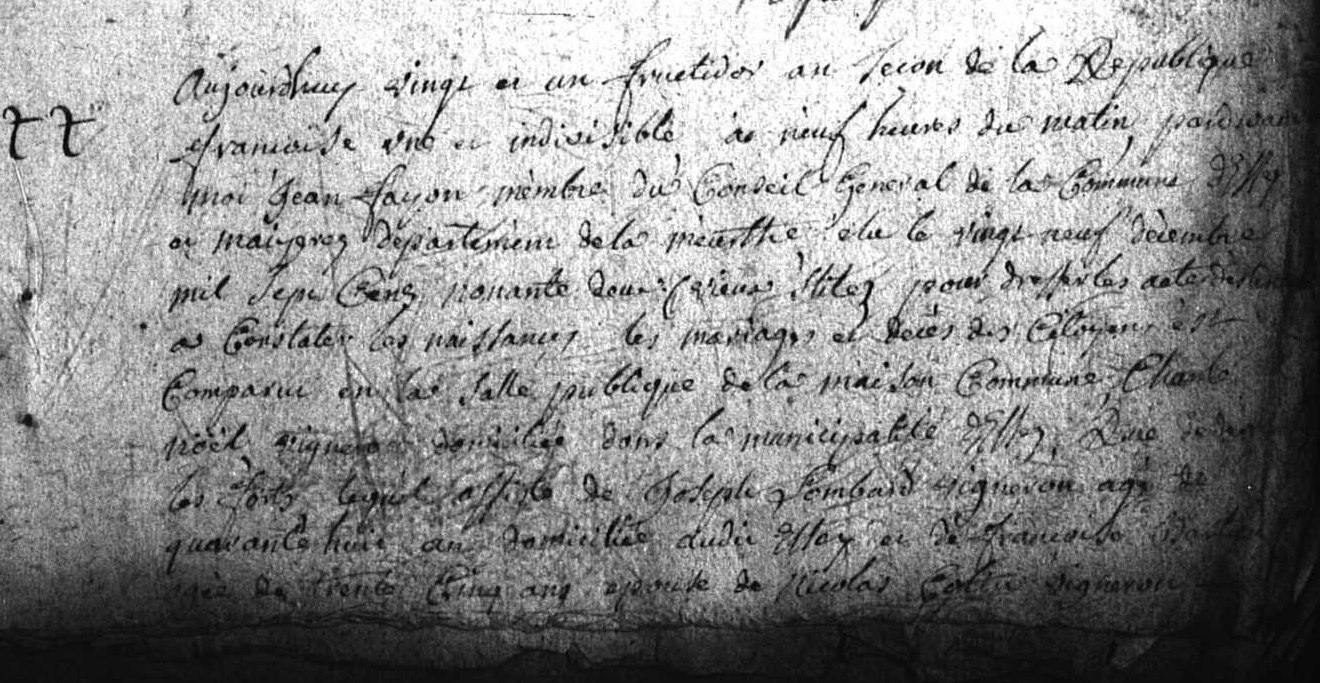 Aujourdhuy vingt et un fructidor an secon de la Republique
francoise une et indivisible a neuf heures du matin pardevant
moi Jean fayon membre du Conseil General de la Commune d'Essey
et maizerez departement de la meurthe elu le vingt neuf decembre
mil sept Cens nonante deux vieux Stile pour dresser les acte destinés
a Constater les naissances les mariages et decés des Citoyens est
Comparu en la Salle publique de la maison Commune Charle
noël vigneron domicilié dans la municipalité d'Essey
les lequel assisté de Joseph vigneron agé de
quarante huit an domicilié audit Essay et de francoise
agée de trente Cinq ans epouse de Nicolas vigneron